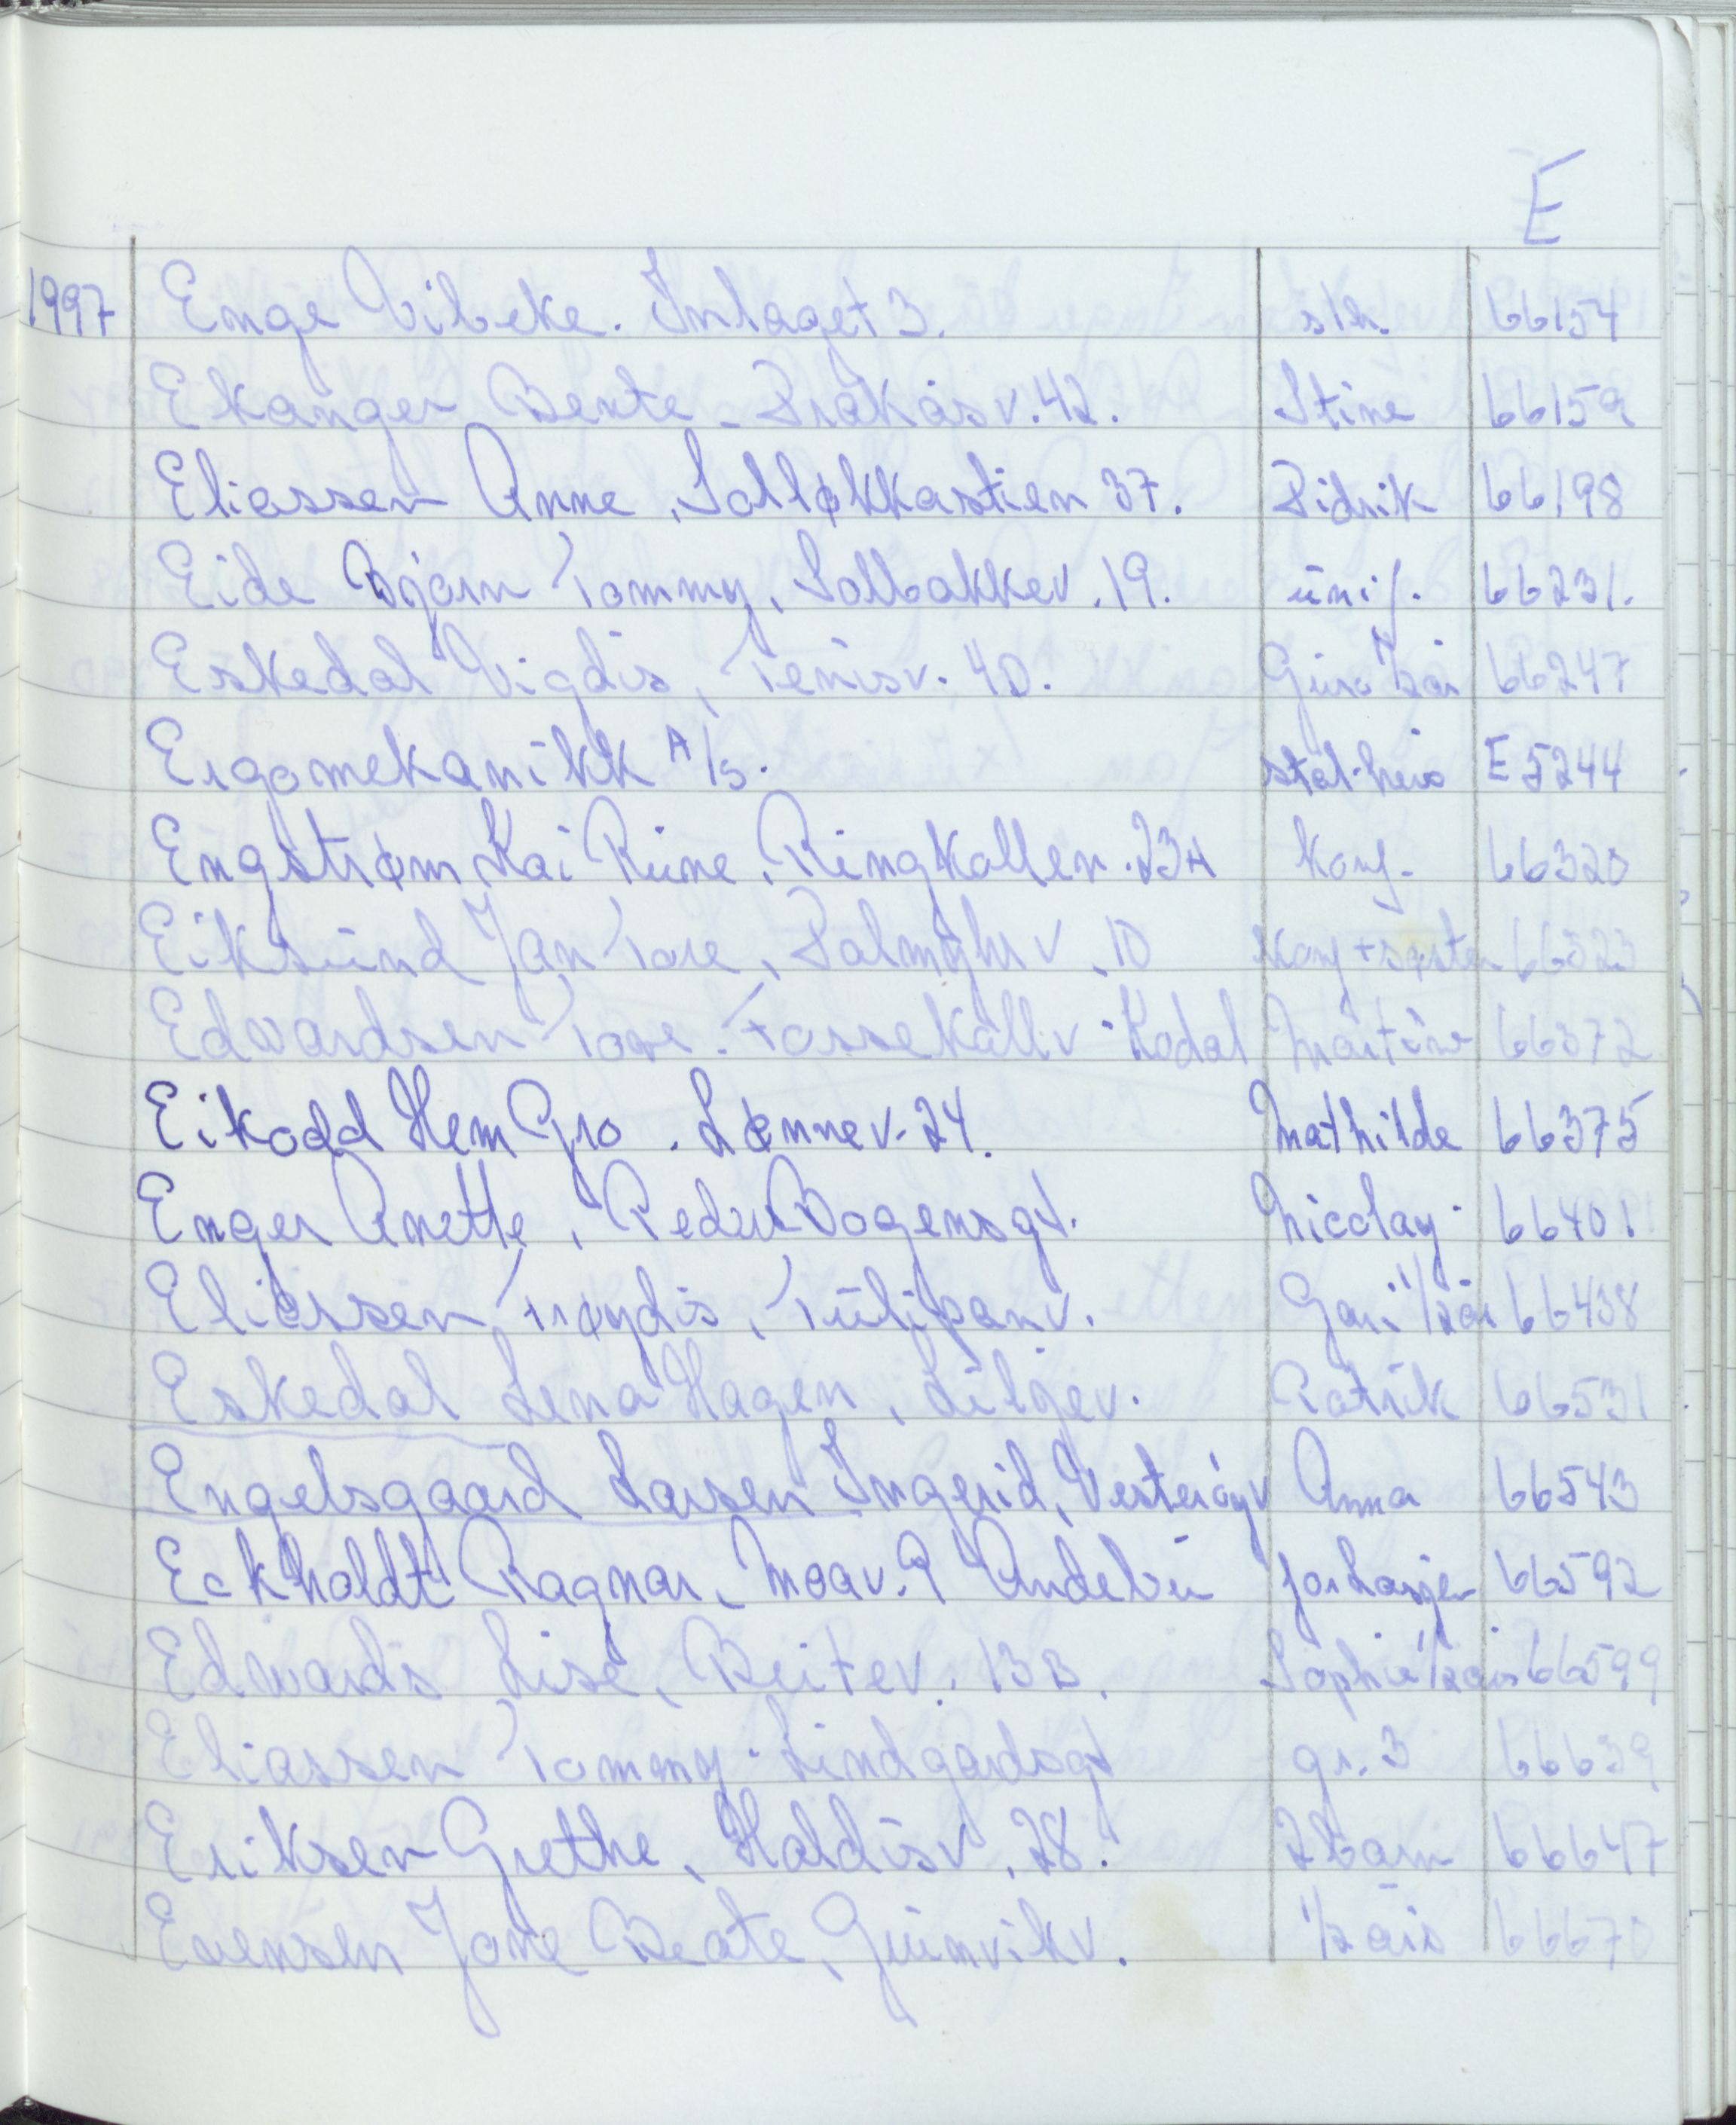 E
1997 Enge Vibeke. Innlaget 3. stk. 66154
Ekanger Bente. Fråkåsv. 42. Stine 66159
Eliassen Anne, Solløkkastien 37. Didrik 66198
Eide Bjørn Tommy, Solbakkev. 19. unif. 66231.
Eskedal Vigdis, Tenisv. 40. Guro 1/2 år 66247
Ergomekanikk A/S. E 5244
Engstrøm Kai Rune, Ringkollen. 23A Konf. 66320
Eiksund Jan Tore, Palmghr v. 10 Konf + søster 66323
Edwardsen Tore. Fossekallv. Kodal Martine 66372
Eikodd Hem Gro. Lønnev. 24. Mathilde 66375
Enger Anette, Peder Bogensgt. Nicolay. 66401
Eliassen Frøydis, Tulipanv. Guri 1/2 år 66438
Eskedal Lena Hagen, Liljev. Patrik 66531
Engelsgaard Larsen Ingerid, Vesterøyv Anna 66543
Eckholdt Ragnar, Moav. 9 Andebu 66592
Edwards Lise, Beitev. 13B. Sophie 1/2 år 66599
Eliassen Tommy. Lindgårdsgt gr. 3 66639
Eriksen Grethe, Haldisv. 28. 2 barn 66647
Evensen Jane Beate, Grumvikv. 1/2 år 66670